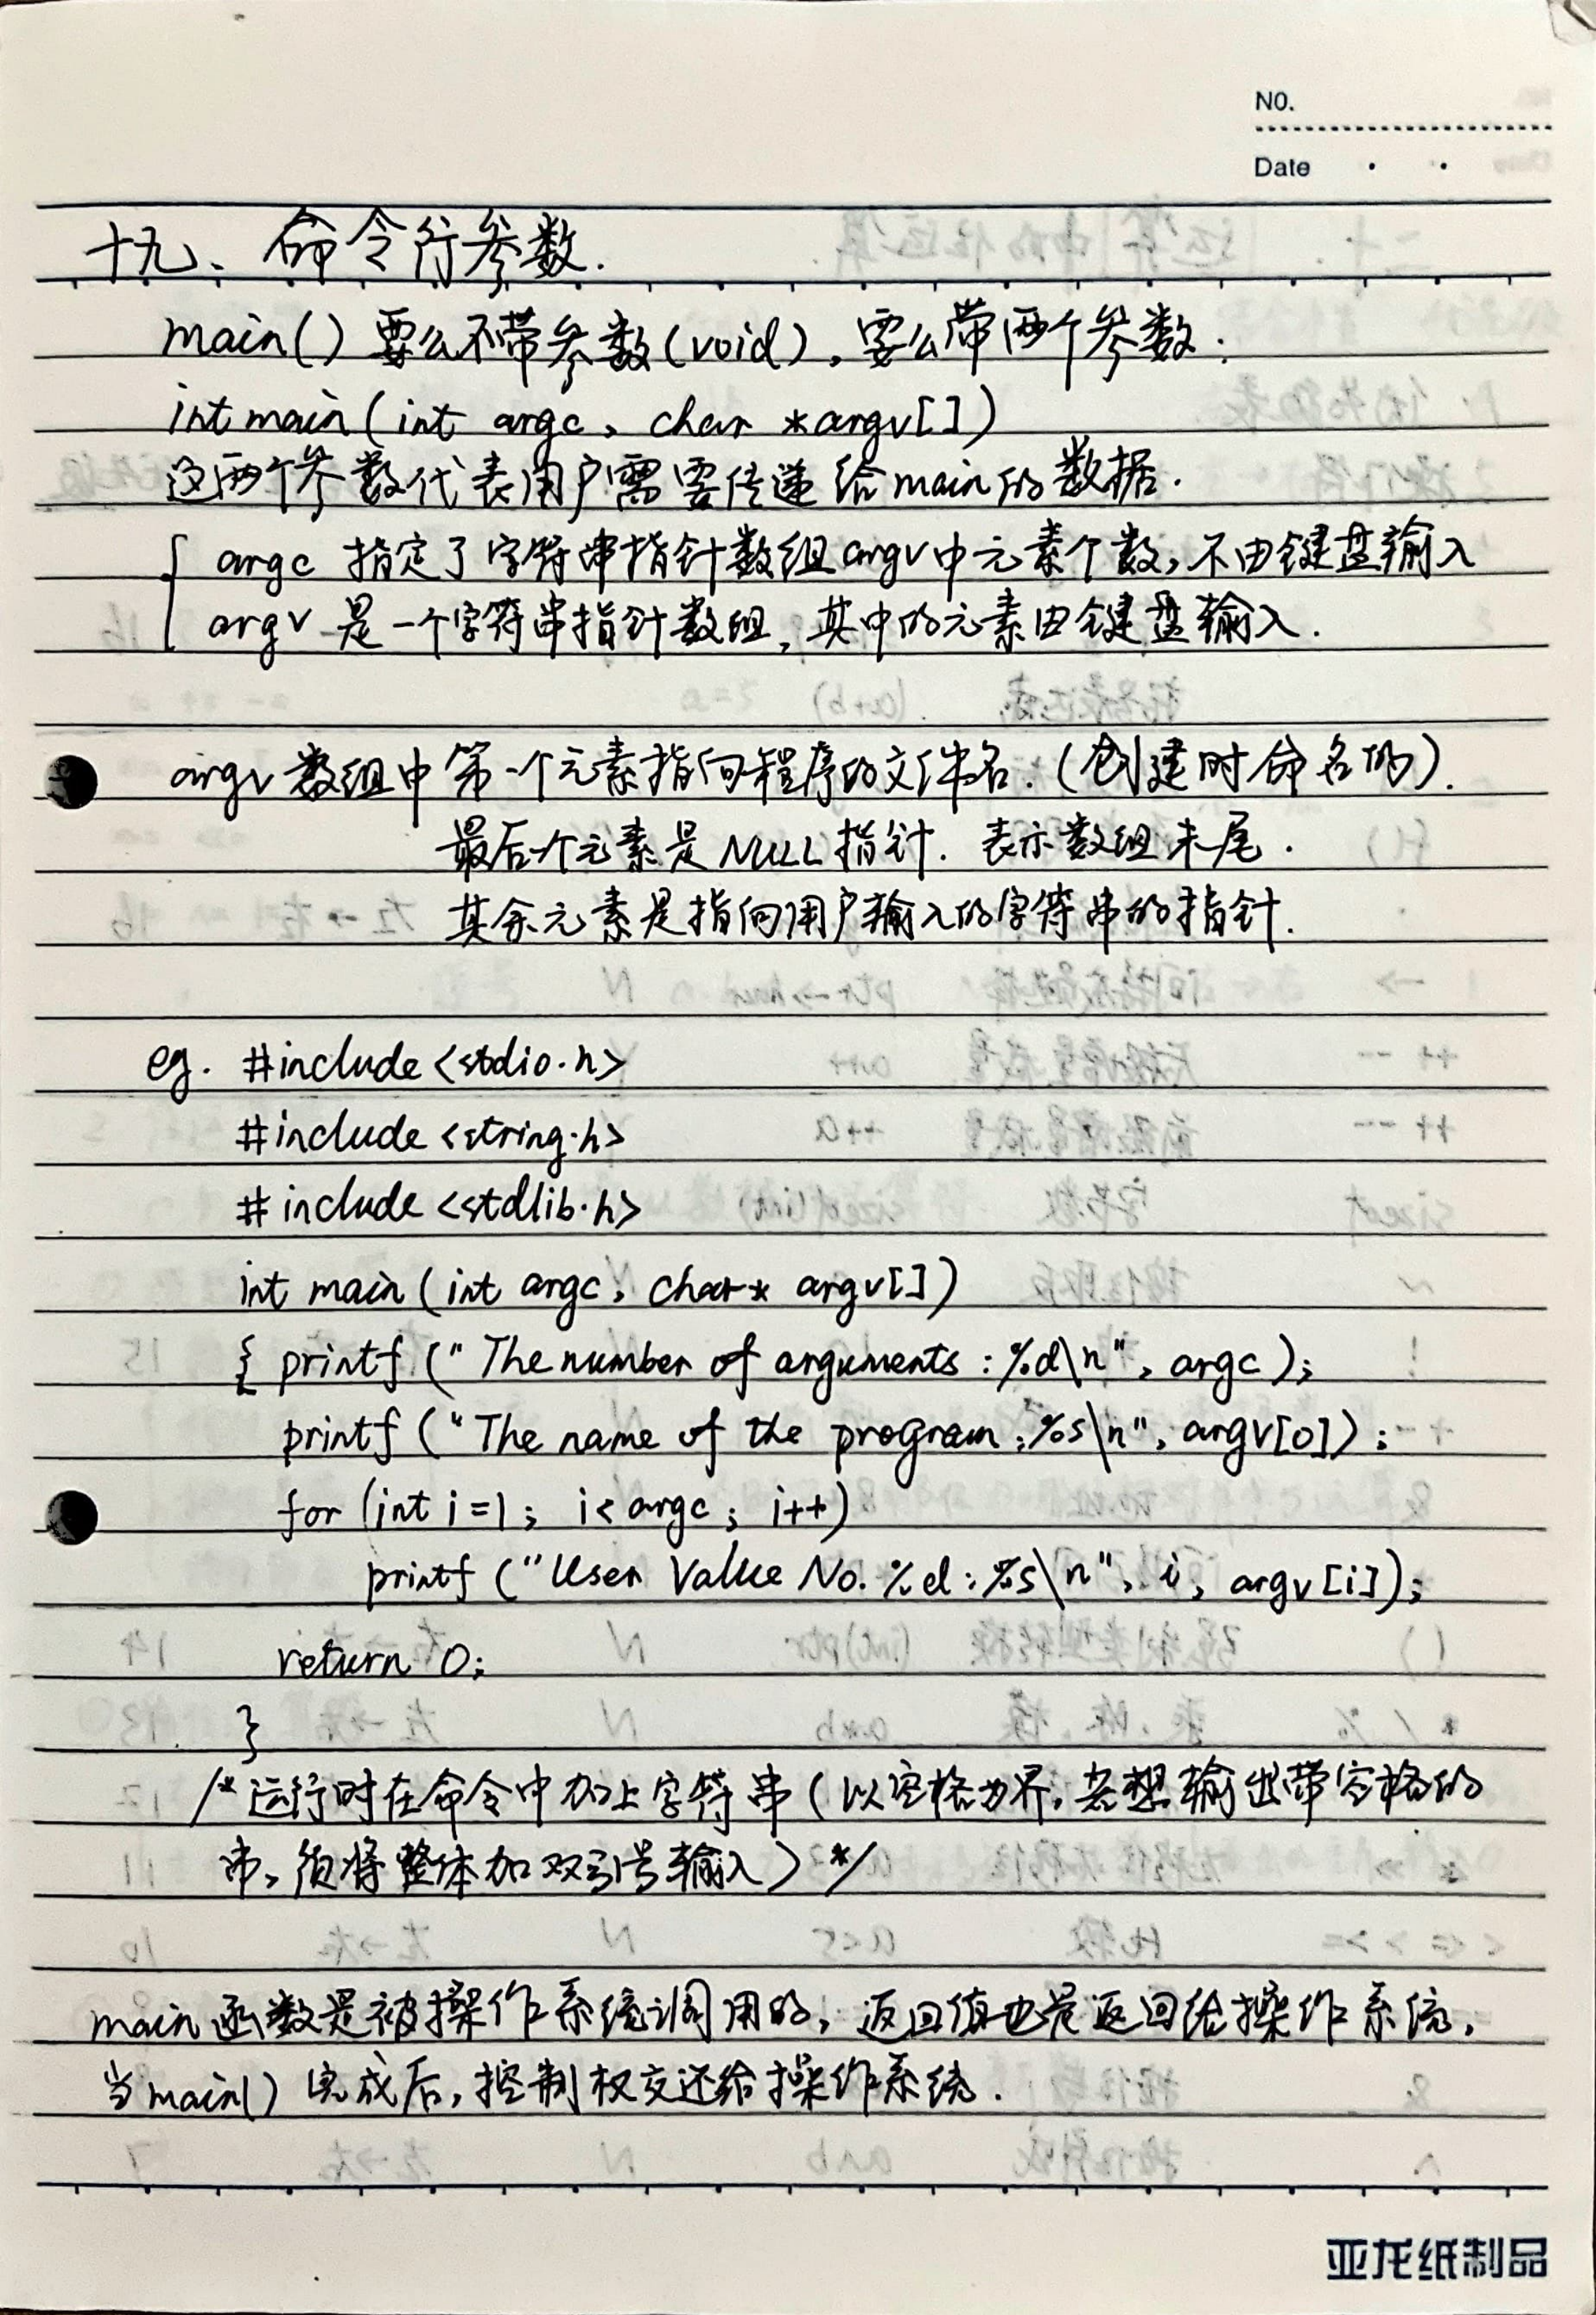 NO.
Date
十九、命令行参数.
main() 要么不带参数(void), 要么带两个参数:
int main(int argc, char *argv[])
这两个参数代表用户需要传递给main的数据.
argc 指定了字符串指针数组argv中元素个数,不由键盘输入
argv 是一个字符串指针数组,其中的元素由键盘输入.
argv数组中第一个元素指向程序的文件名.(创建时命名的).
最后一个元素是NULL指针.表示数组末尾.
其余元素是指向用户输入的字符串的指针.
eg. #include <stdio.h>
#include <string.h>
#include <stdlib.h>
int main(int argc, char* argv[])
{ printf("The number of arguments:%d\n", argc);
printf("The name of the program:%s\n", argv[0]);
for (int i=1; i<argc; i++)
printf("User Value No.%d:%s\n", i, argv[i]);
return 0;
}
/*运行时在命令中加上字符串(以空格为界,若想输出带空格的
串,须将整体加双引号输入)*/
main函数是被操作系统调用的,返回值也是返回给操作系统,
当main()完成后,控制权交还给操作系统.
亚龙纸制品